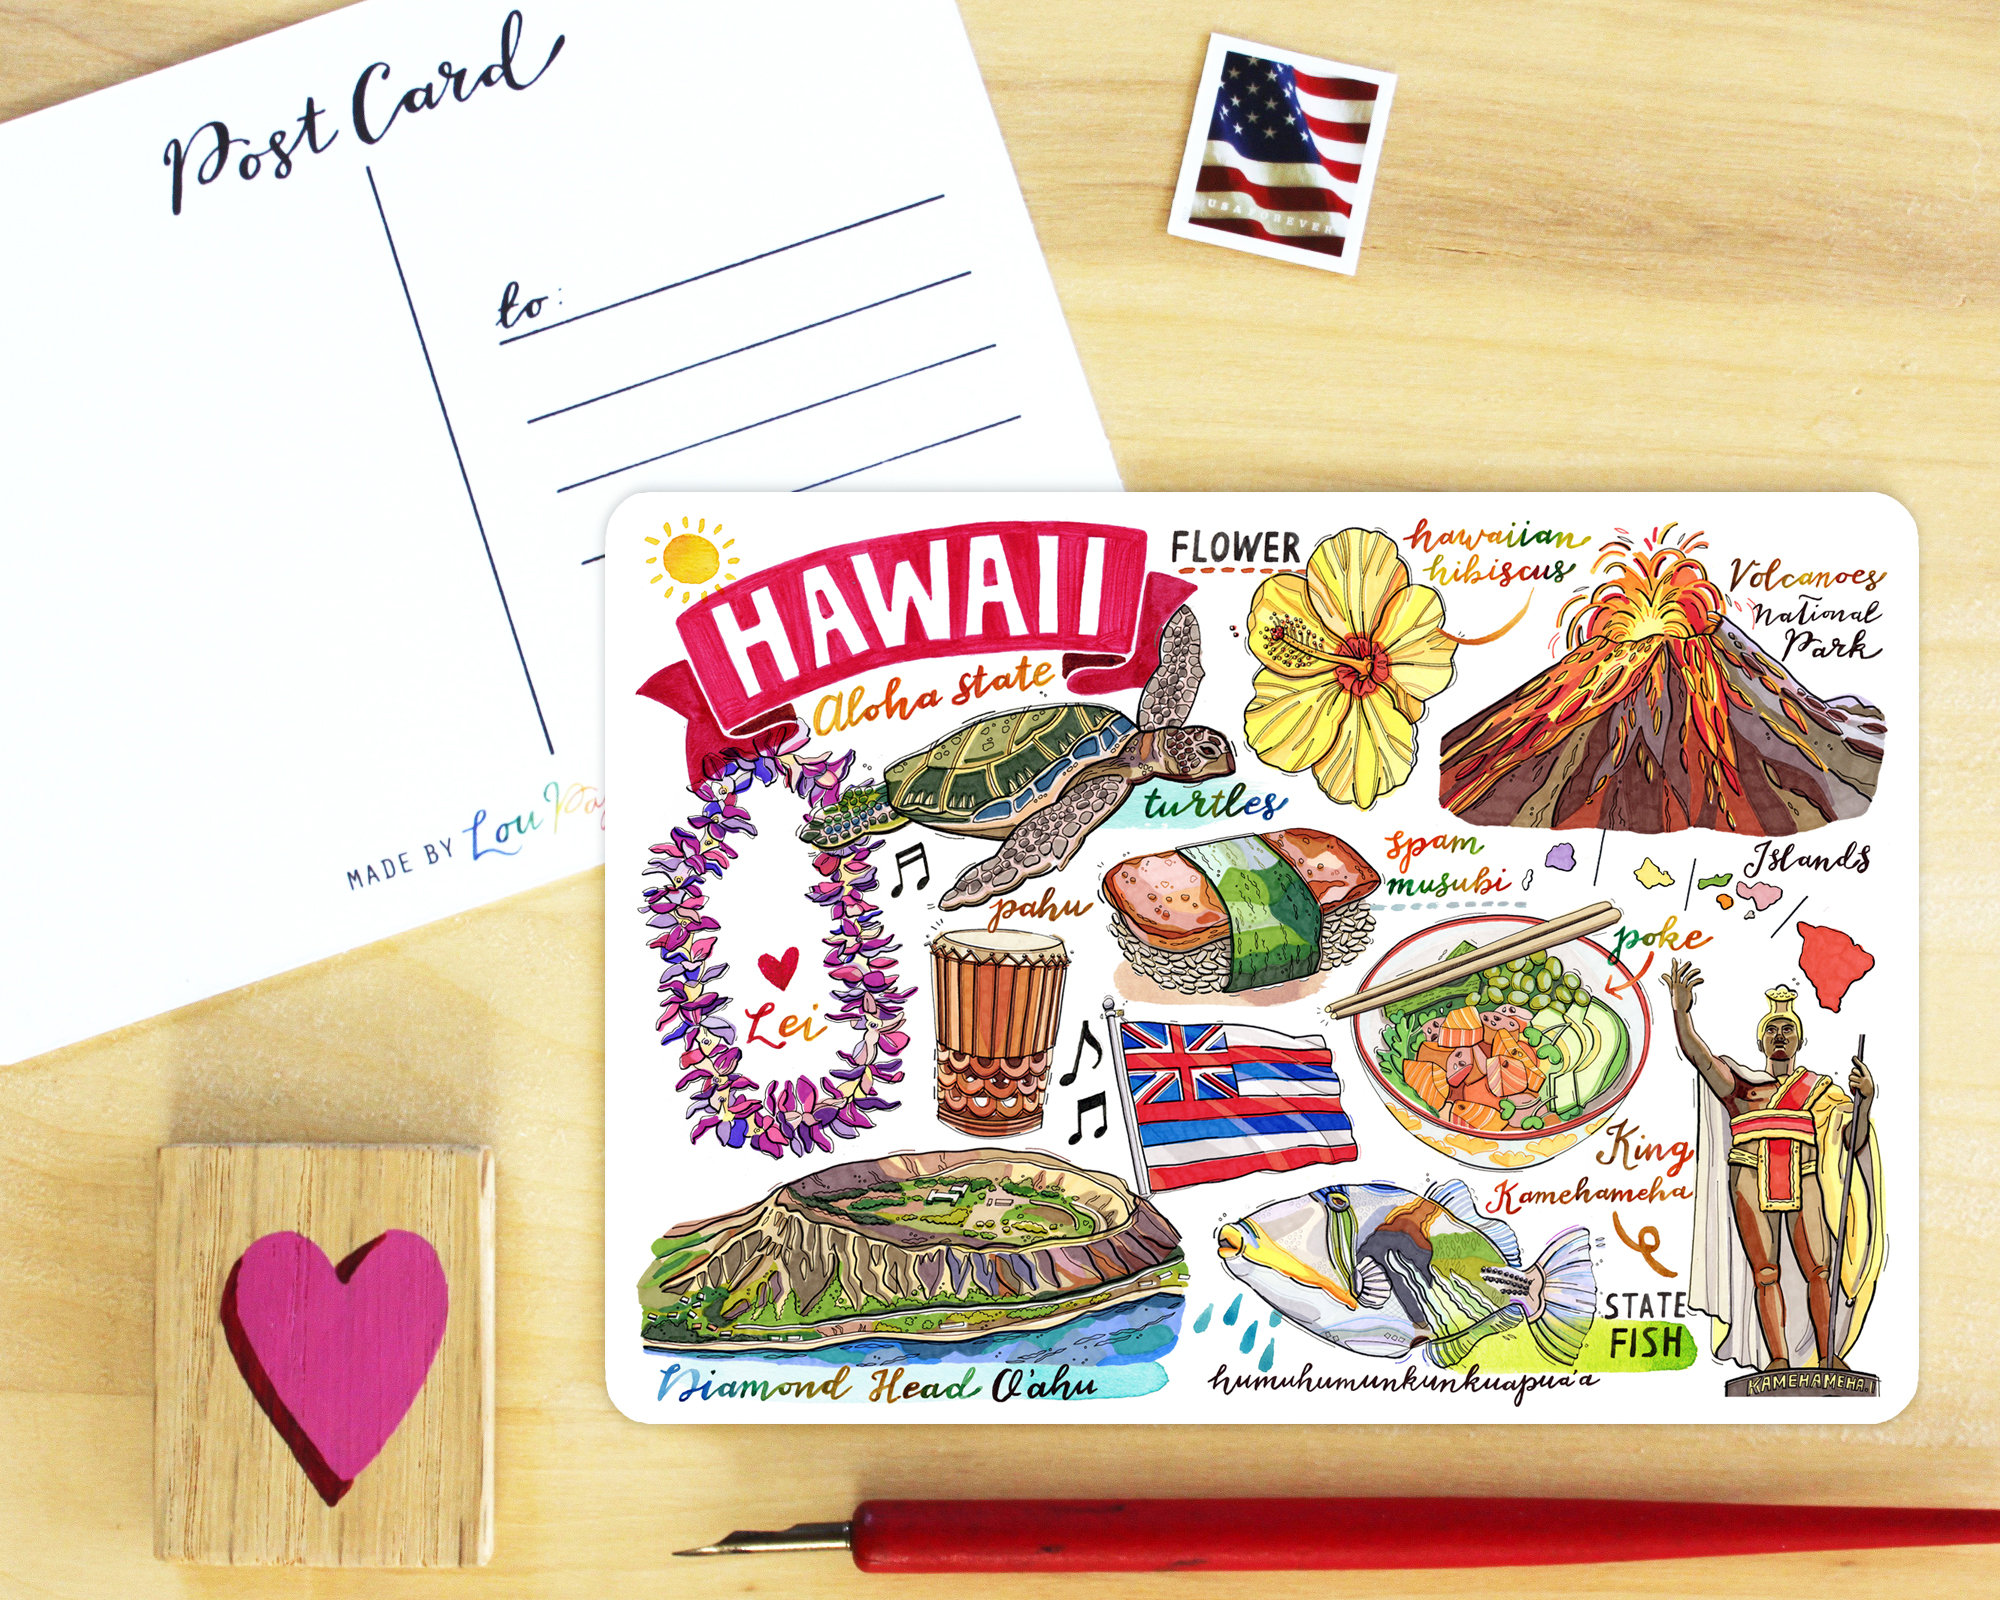 Post Card
to:
MADE BY Lou
USA FOREVER
HAWAII
Aloha state
FLOWER
hawaiian
hibiscus
Volcanoes
National
Park
turtles
spam
musubi
Islands
pahu
poke
Lei
King
Kamehameha
STATE
FISH
Diamond Head O'ahu
humuhumunkunkuapua'a
KAMEHAMEHA.I